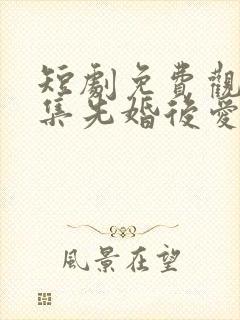 短劇免費觀
集先婚後愛
風景在望